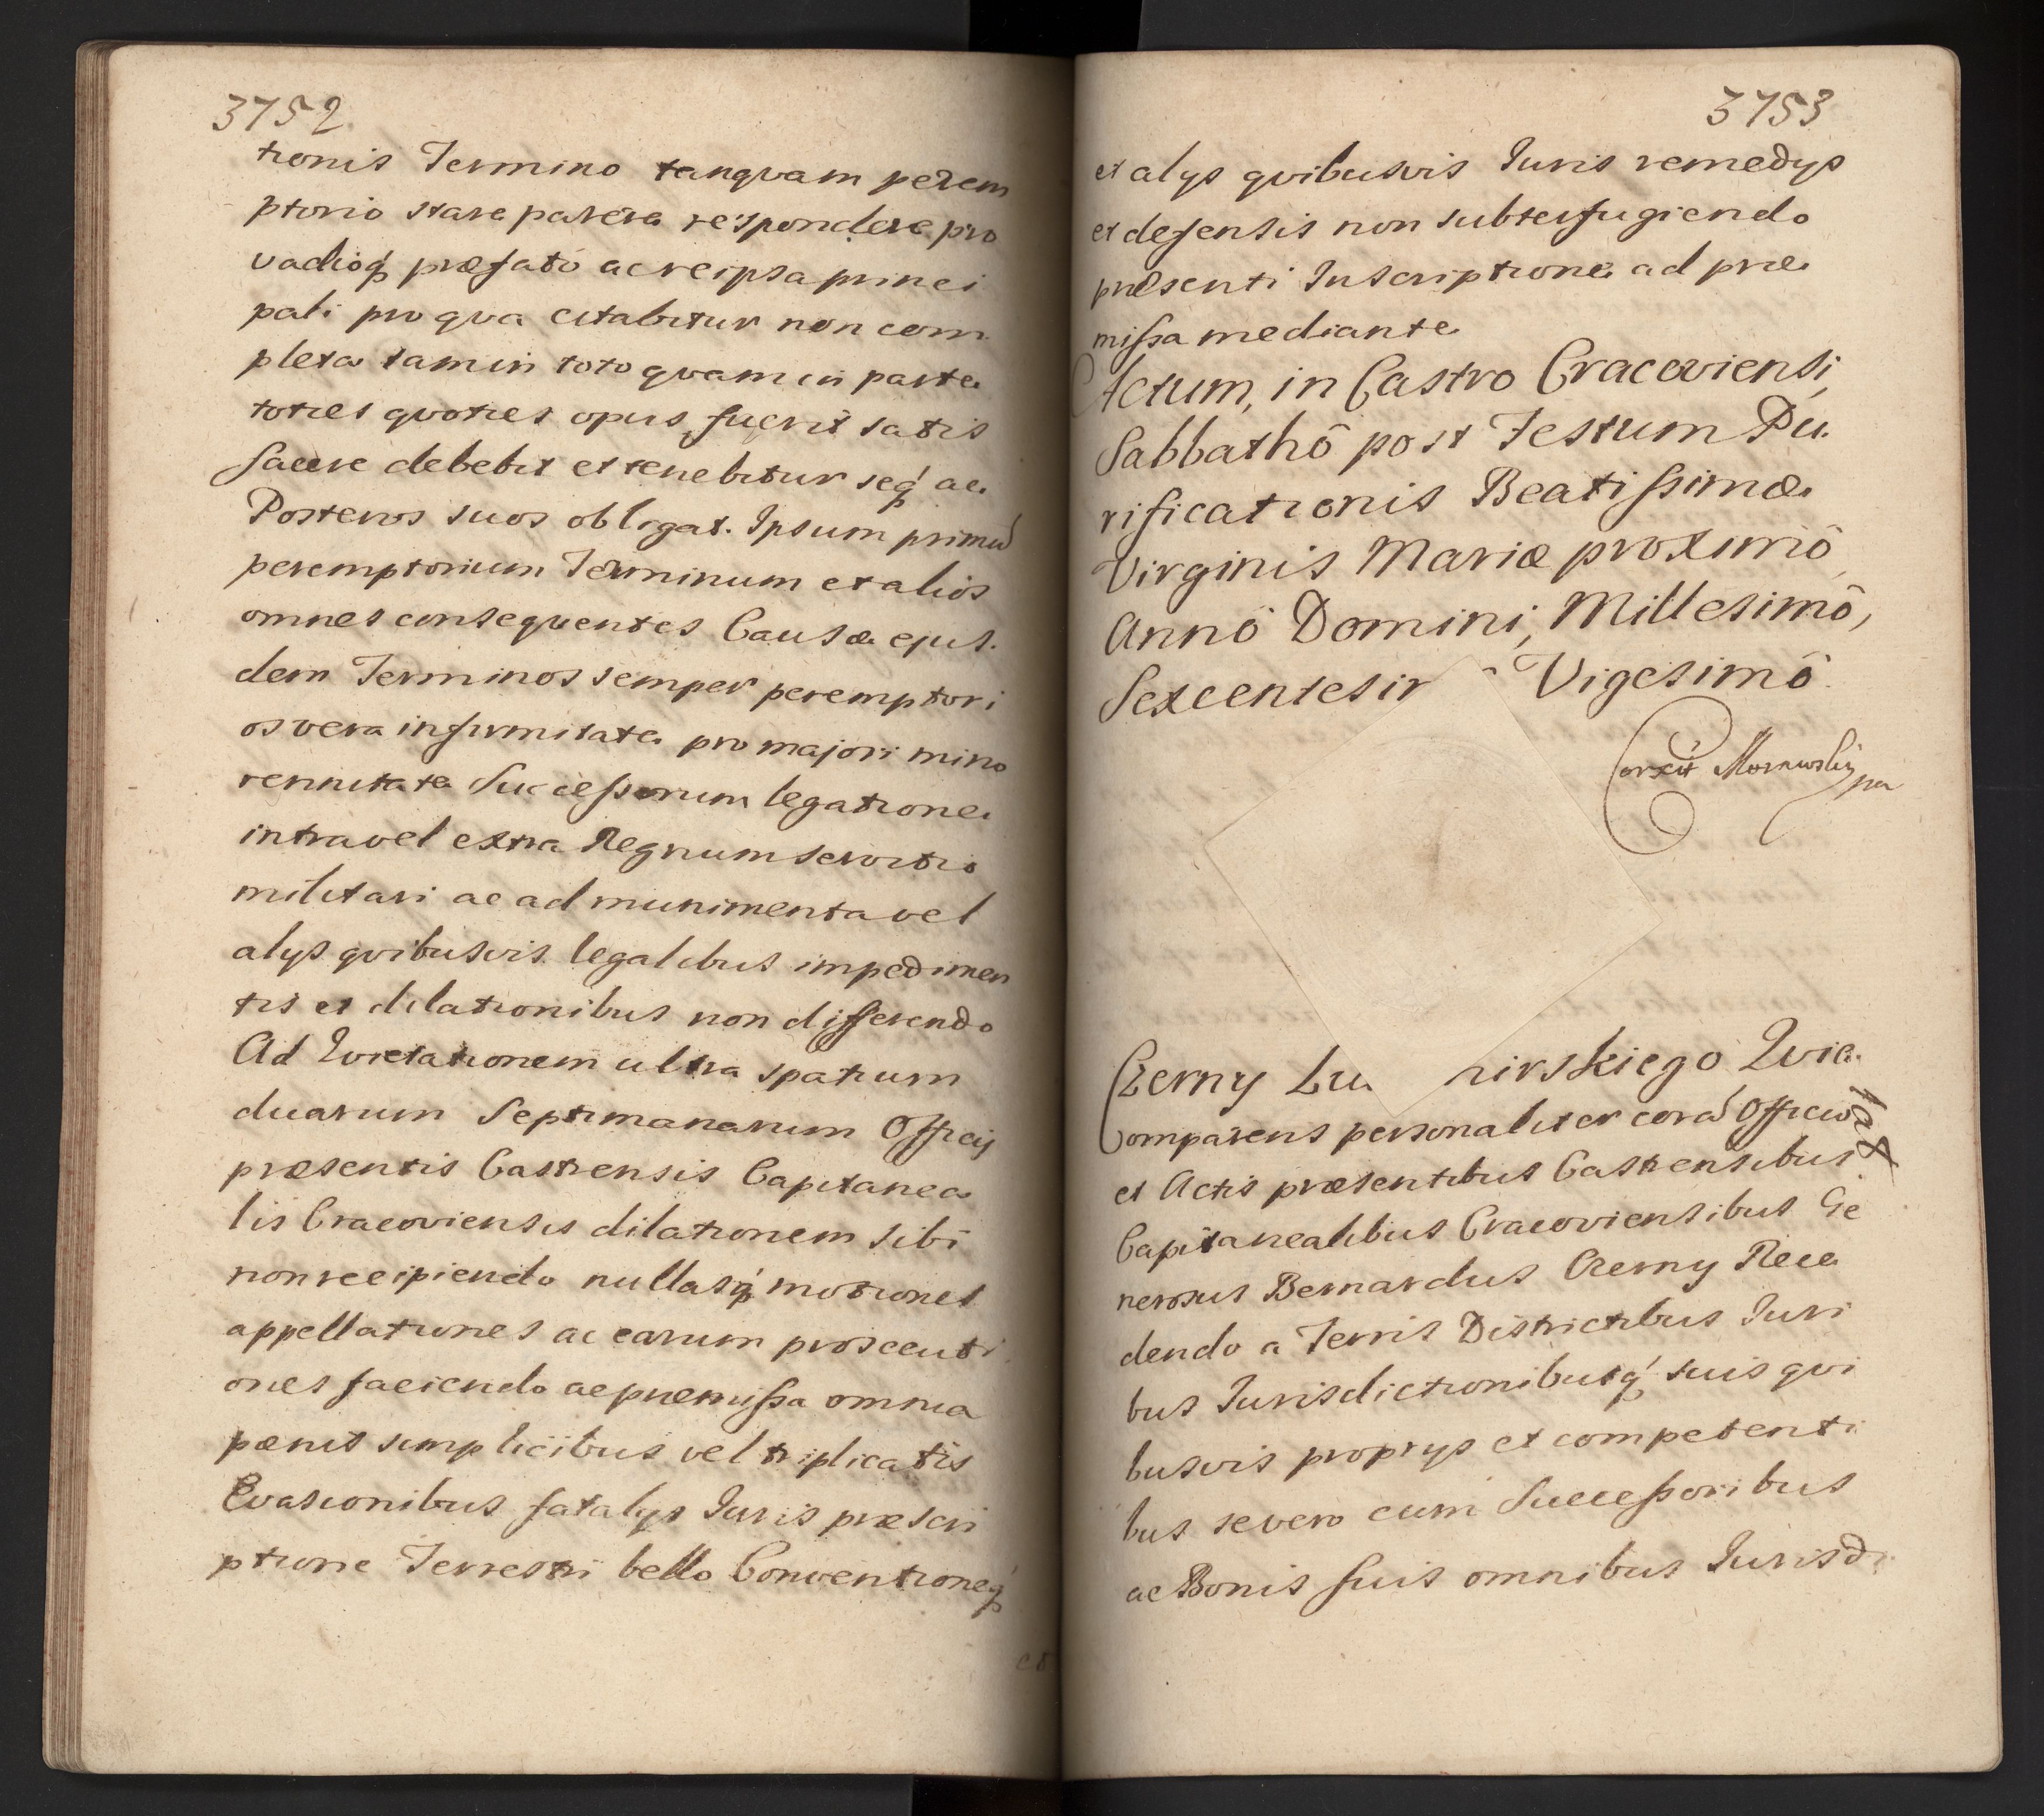 3752
tionis Termino tanqvam perem
ptorio stare parere respondere pro
vadioq́ præfató ac reipsa princi
pali pro qva citabitur non com
pleta tam in toto qvam in parte
toties qvoties opus fuerit satis
facere debebit et tenebitur seq́ ac
Posteros suos obligat. Ipsum primū
peremptorium Terminum et alios
omnes consequentes Causæ ejus.
dem Terminos semper peremptori
os vera infirmitate pro majori mino
rennitate Successorum legatione
intra vel extra Regnum servitio
militari ac ad munimenta vel
alys qvibusvis legalibus impedimen
tis et dilationibus non differendo
Ad Evictationem ultra spatium
duarum Septimanarum Officij
præsentis Castrensis Capitanea
lis Cracoviensis dilationem sibi
non recipiendo nullasq́ motiones
appellationes ac earum prosecuti
ones faciendo ac præmissa omnia
pænis simplicibus vel triplicatis
Evasionibus fatalys Iuris præscri
ptione Terrestri bello Conventioneq́
3753
et alys qvibusvis Iuris remedys
et defensis non subterfugiendo
præsenti Inscriptione ad præ
missa mediante
Actum, in Castro Cracoviensi,
Sabbathô post Festum Pu.
rificationis Beatissimæ
Virginis Mariæ proximô
Annô Domini, Millesimô,
Sexcentesi Vigesimô
Corexit
Czerny Lu mirskiego Qvie
tat
Comparens personaliter corā Officio
et Actis præsentibus Castrensibus
Capitanealibus Cracoviensibus Ge
nerosus Bernardus Czerny Rece
dendo a Terris Districtibus Iuri
bus Iurisdictionibusq́ suis qvi
busvis proprys et competenti
bus se vero cum Successoribus
ac Bonis suis omnibus Iurisdi